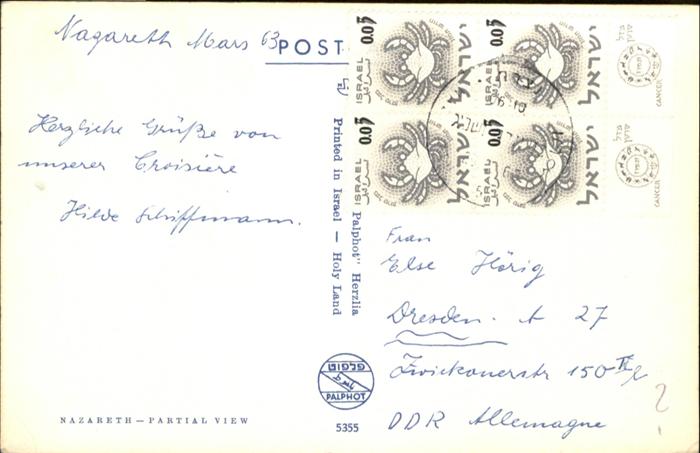 Nazareth Mars 63
POST
Herzliche Grüße von
unserer Croisière
Hilde Schiffmann.
Printed in Israel — Holy Land
Palphot" Herzlia
0.05
ISRAEL
ישראל
0.05
ISRAEL
ישראל
0.05
ISRAEL
ישראל
0.05
ISRAEL
ישראל
CANCER
CANCER
Frau
Else Hörig
Dresden. A 27
Zwickauerstr 150
DDR Allemagne
פלפוט
PALPHOT
5355
NAZARETH — PARTIAL VIEW